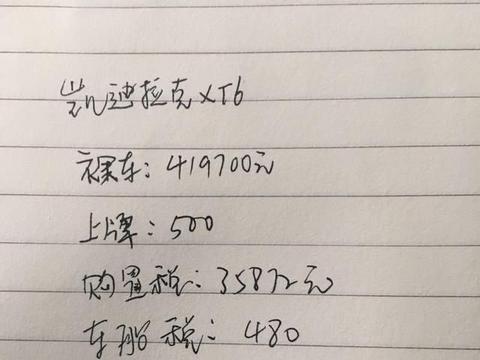 凯迪拉克XT6
裸车：419700元
上牌：500
购置税：35872元
车船税：480